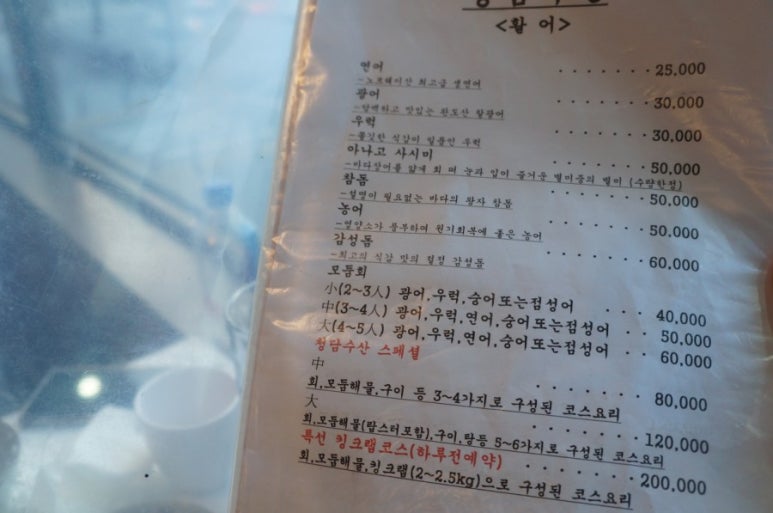 <활 어>
연어 ・・・・・・・ 25,000
-노르웨이산 최고급 생연어
광어 ・・・・・・・ 30,000
-담백하고 맛있는 완도산 활광어
우럭 ・・・・・・・ 30,000
-쫄깃한 식감이 일품인 우럭
아나고 사시미 ・・・・・・ 50,000
-바다장어를 얇게 회 떠 눈과 입이 즐거운 별미중의 별미 (수량한정)
참돔 ・・・・・・・ 50,000
-설명이 필요없는 바다의 왕자 참돔
농어 ・・・・・・・ 50,000
-영양소가 풍부하여 원기회복에 좋은 농어
감성돔 ・・・・・・・ 60,000
-최고의 식감 맛의 절정 감성돔
모듬회
小(2~3人) 광어,우럭,숭어또는점성어 ・・・・ 40,000
中(3~4人) 광어,우럭,연어,숭어또는점성어 ・・・ 50,000
大(4~5人) 광어,우럭,연어,숭어또는점성어 ・・ 60,000
청담수산 스페셜
中 ・・・・・・・ 80,000
회,모듬해물,구이 등 3~4가지로 구성된 코스요리
大 ・・・・・・・ 120,000
회,모듬해물(랍스터포함),구이,탕등 5~6가지로 구성된 코스요리
특선 킹크랩코스(하루전예약) ・・・・・・・ 200,000
회,모듬해물,킹크랩(2~2.5kg)으로 구성된 코스요리